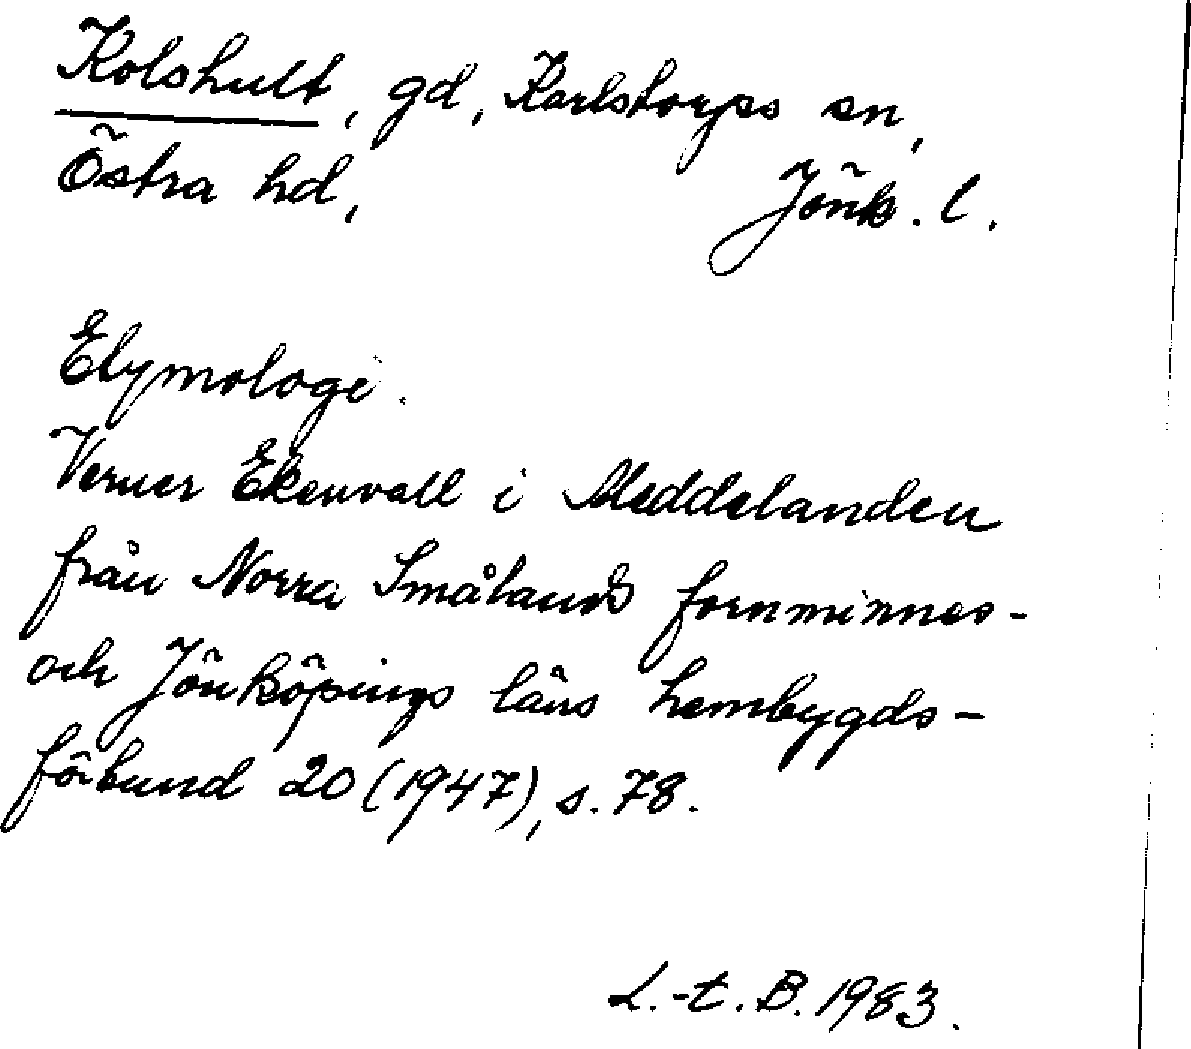 Kolshult, gd, Karlstorps sn,
Östra hd, Jönk. l.
Etymologi.
Verner Ekenvall i Meddelanden
från Norra Smålands fornminnes-
och Jönköpings läns hembygds-
förbund 20 (1947), s. 78.
L.-t. B. 1983.